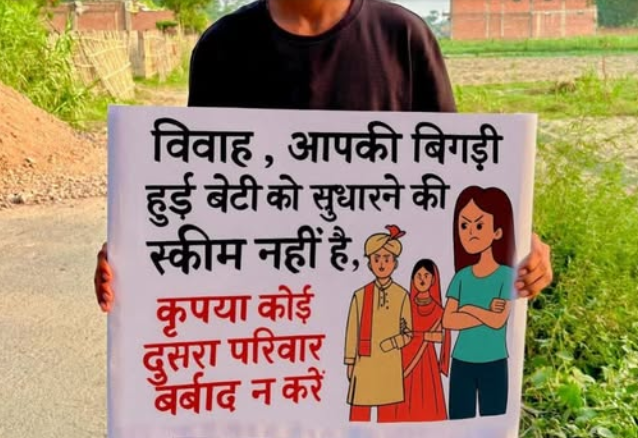 विवाह , आपकी बिगड़ी
हुई बेटी को सुधारने की
स्कीम नहीं है,
कृपया कोई
दुसरा परिवार
बर्बाद न करें